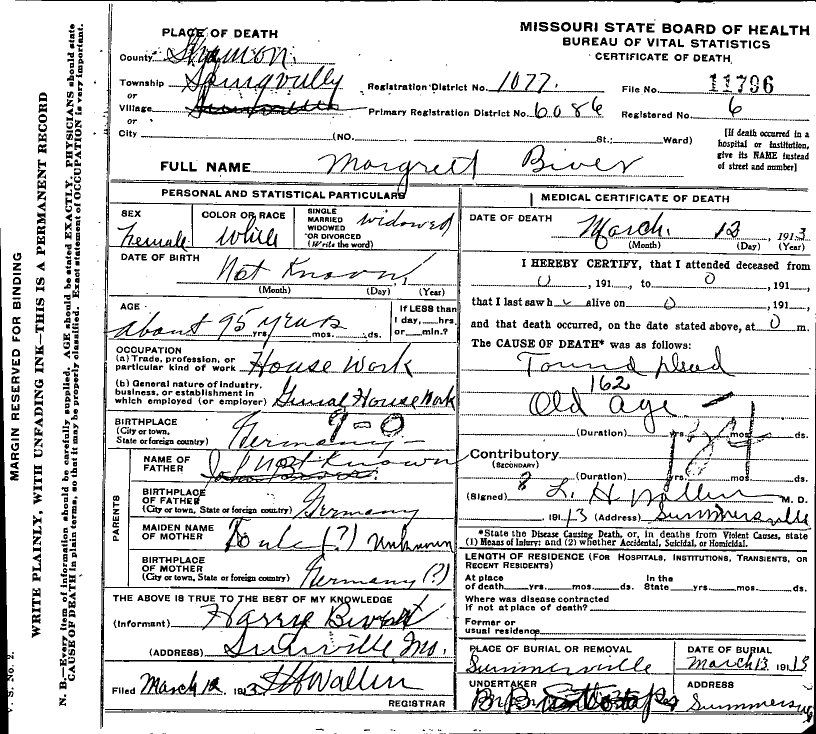 MISSOURI STATE BOARD OF HEALTH
BUREAU OF VITAL STATISTICS
CERTIFICATE OF DEATH
PLACE OF DEATH
County
Township
or
Village
or
City (NO. St.; Ward)
Registration District No. 1077. File No. 11796
Primary Registration District No. 6086 Registered No. 6
[If death occurred in a
hospital or institution,
give its NAME instead
of street and number]
FULL NAME Margrett Biver
PERSONAL AND STATISTICAL PARTICULARS
SEX
Female
COLOR OR RACE
White
SINGLE
MARRIED
WIDOWED
OR DIVORCED
(Write the word)
widowed
DATE OF BIRTH
Not Known
(Month) (Day) (Year)
AGE
about 95 years
yrs. mos. ds.
If LESS than
1 day, hrs.
or min.?
OCCUPATION
(a) Trade, profession, or
particular kind of work House Work
(b) General nature of industry,
business, or establishment in
which employed (or employer) General House Work
9-0
BIRTHPLACE
(City or town,
State or foreign country) Germany
PARENTS
NAME OF
FATHER Not Known
BIRTHPLACE
OF FATHER
(City or town, State or foreign country) Germany
MAIDEN NAME
OF MOTHER (?) Unknown
BIRTHPLACE
OF MOTHER
(City or town, State or foreign country) Germany (?)
THE ABOVE IS TRUE TO THE BEST OF MY KNOWLEDGE
(Informant) Harry
(ADDRESS) Mo.
Filed March 12, 1913 Wallin
REGISTRAR
MEDICAL CERTIFICATE OF DEATH
DATE OF DEATH
March. 12, 1913
(Month) (Day) (Year)
I HEREBY CERTIFY, that I attended deceased from
0, 191, to 0, 191,
that I last saw h alive on 0, 191,
and that death occurred, on the date stated above, at 0 m.
The CAUSE OF DEATH* was as follows:
Found dead
162
Old age
(Duration) yrs. mos. ds.
Contributory
(SECONDARY)
(Duration) yrs. mos. ds.
(Signed) L. H. Wallin M. D.
1913 (Address) Summersville
*State the Disease Causing Death, or, in deaths from Violent Causes, state
(1) Means of Injury; and (2) whether Accidental, Suicidal, or Homicidal.
LENGTH OF RESIDENCE (FOR HOSPITALS, INSTITUTIONS, TRANSIENTS, OR
RECENT RESIDENTS)
At place
of death yrs. mos. ds.
In the
State yrs. mos. ds.
Where was disease contracted
if not at place of death?
Former or
usual residence
PLACE OF BURIAL OR REMOVAL
Summerville
DATE OF BURIAL
March 13 1913
UNDERTAKER
ADDRESS
MARGIN RESERVED FOR BINDING
WRITE PLAINLY, WITH UNFADING INK—THIS IS A PERMANENT RECORD
N. B.—Every item of information should be carefully supplied. AGE should be stated EXACTLY. PHYSICIANS should state
CAUSE OF DEATH in plain terms, so that it may be properly classified. Exact statement of OCCUPATION is very important.
V. S. No. 2.